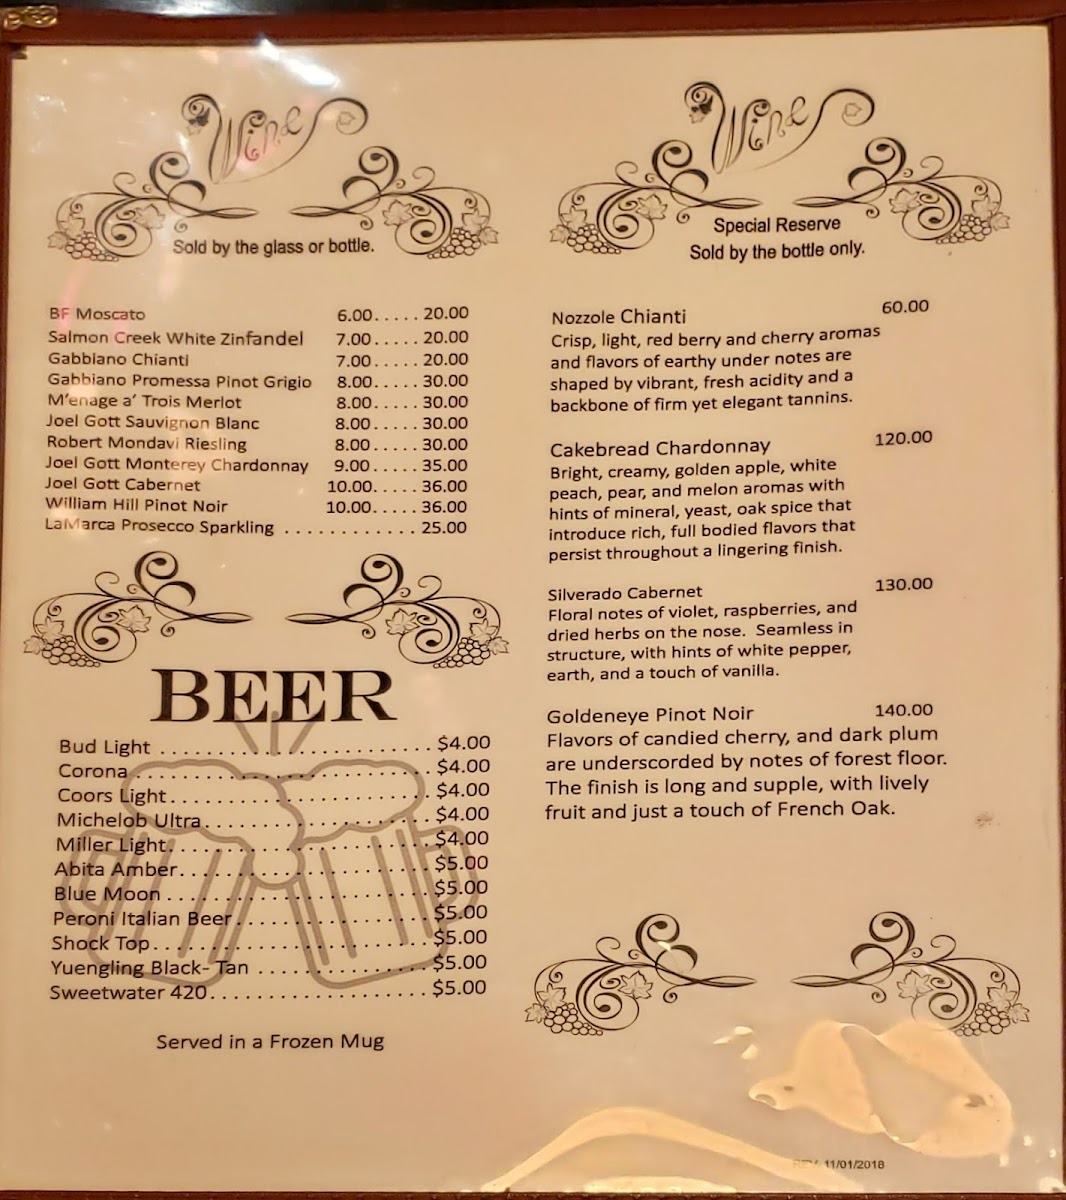 Wine
Sold by the glass or bottle.
BF Moscato 6.00.....20.00
Salmon Creek White Zinfandel 7.00.....20.00
Gabbiano Chianti 7.00.....20.00
Gabbiano Promessa Pinot Grigio 8.00.....30.00
M'enage a' Trois Merlot 8.00.....30.00
Joel Gott Sauvignon Blanc 8.00.....30.00
Robert Mondavi Riesling 8.00.....30.00
Joel Gott Monterey Chardonnay 9.00.....35.00
Joel Gott Cabernet 10.00.....36.00
William Hill Pinot Noir 10.00.....36.00
LaMarca Prosecco Sparkling ............. 25.00
BEER
Bud Light ........................... $4.00
Corona............................. $4.00
Coors Light.......................... $4.00
Michelob Ultra....................... $4.00
Miller Light.......................... $4.00
Abita Amber......................... $5.00
Blue Moon .......................... $5.00
Peroni Italian Beer.................... $5.00
Shock Top........................... $5.00
Yuengling Black- Tan ................. $5.00
Sweetwater 420...................... $5.00
Served in a Frozen Mug
Wine
Special Reserve
Sold by the bottle only.
Nozzole Chianti 60.00
Crisp, light, red berry and cherry aromas
and flavors of earthy under notes are
shaped by vibrant, fresh acidity and a
backbone of firm yet elegant tannins.
Cakebread Chardonnay 120.00
Bright, creamy, golden apple, white
peach, pear, and melon aromas with
hints of mineral, yeast, oak spice that
introduce rich, full bodied flavors that
persist throughout a lingering finish.
Silverado Cabernet 130.00
Floral notes of violet, raspberries, and
dried herbs on the nose. Seamless in
structure, with hints of white pepper,
earth, and a touch of vanilla.
Goldeneye Pinot Noir 140.00
Flavors of candied cherry, and dark plum
are underscorded by notes of forest floor.
The finish is long and supple, with lively
fruit and just a touch of French Oak.
REV. 11/01/2018